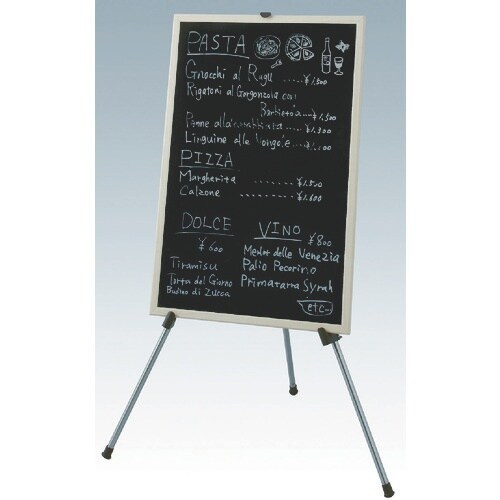 PASTA
Gnocchi al Ragu ......¥1,500
Rigatoni al Gorgonzola con
Barbietola ...¥1,500
Penne all'arrabbiata ...¥1,300
Linguine alle Vongole...
PIZZA
Margherita ........ ¥1,500
Calzone ........ ¥1,600
DOLCE
¥600
Tiramisu
Torta del Giorno
Budino di Zucca
VINO ¥800
Merlot delle Venezia
Palio Pecorino
Primaterra Syrah
etc...